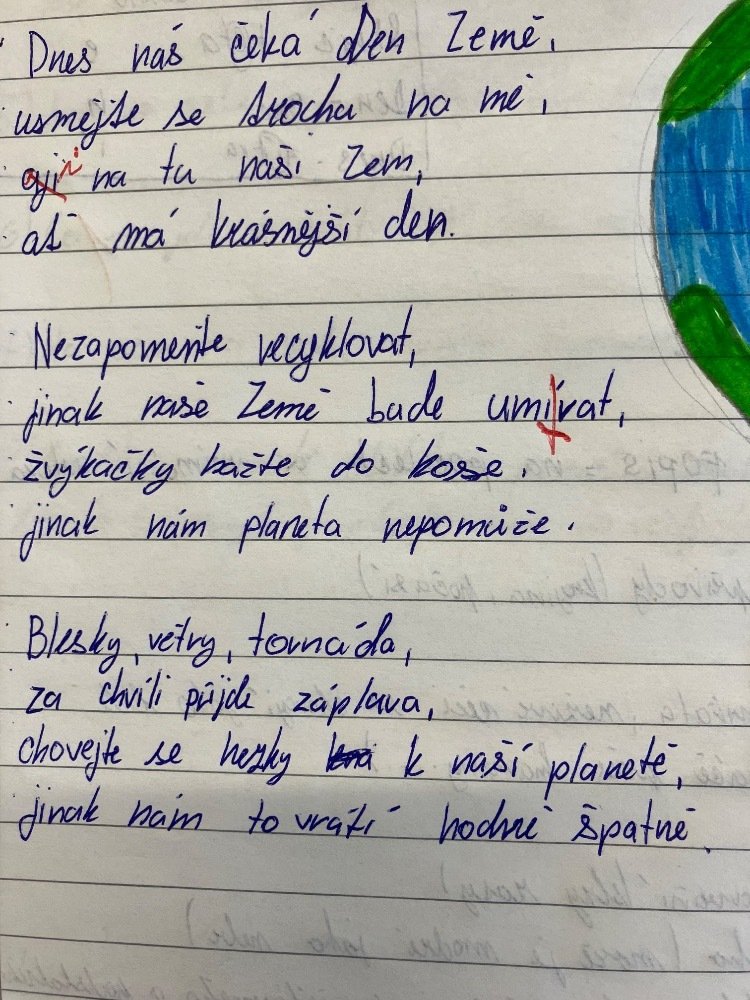 Dnes nás čeká Den Země,
usmějte se trochu na mě,
i na tu naši Zem,
ať má krásnější den.
Nezapomeňte recyklovat,
jinak naše Země bude umírat,
žvýkačky hažte do koše,
jinak nám planeta nepomůže.
Blesky, větry, tornáda,
za chvíli přijde záplava,
chovejte se hezky k naší planetě,
jinak nám to vrátí hodně špatně.